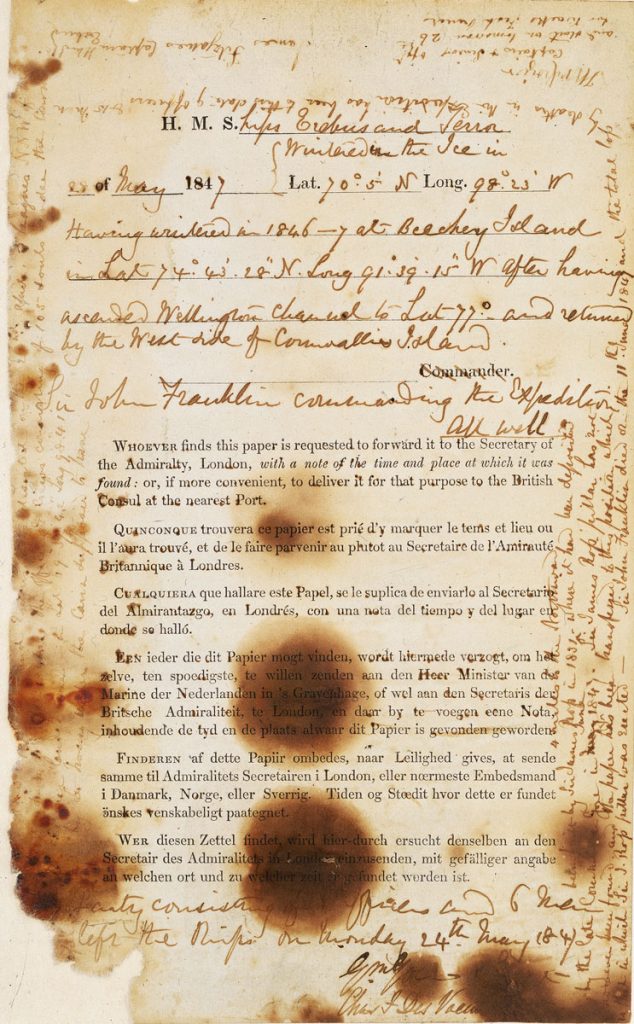 H. M. S. hips Erebus and Terror
Wintered in the Ice in
of May 1847 Lat. 70° 5' N Long. 98° 23' W
Having wintered in 1846–7 at Beechey Island
in Lat 74° 43' 28" N. Long 91° 39' 15" W After having
ascended Wellington Channel to Lat 77° and returned
by the West side of Cornwallis Island.
Commander.
Sir John Franklin commanding the Expedition
All well
WHOEVER finds this paper is requested to forward it to the Secretary of
the Admiralty, London, with a note of the time and place at which it was
found: or, if more convenient, to deliver it for that purpose to the British
Consul at the nearest Port.
QUINCONQUE trouvera ce papier est prié d'y marquer le tems et lieu ou
il l'aura trouvé, et de le faire parvenir au plutot au Secretaire de l'Amirauté
Britannique à Londres.
CUALQUIERA que hallare este Papel, se le suplica de enviarlo al Secretario
del Almirantazgo, en Londrés, con una nota del tiempo y del lugar en
donde se halló.
EEN ieder die dit Papier mogt vinden, wordt hiermede verzogt, om het
zelve, ten spoedigste, te willen zenden aan den Heer Minister van de
Marine der Nederlanden in 's Gravenhage, of wel aan den Secretaris der
Britsche Admiraliteit, te London, en daar by te voegen eene Nota
inhoudende de tyd en de plaats alwaar dit Papier is gevonden geworden
FINDEREN af dette Papiir ombedes, naar Leilighed gives, at sende
samme til Admiralitets Secretairen i London, eller nœrmeste Embedsmand
i Danmark, Norge, eller Sverrig. Tiden og Stœdit hvor dette er fundet
önskes venskabeligt paategnet.
WER diesen Zettel findet, wird hier-durch ersucht denselben an den
Secretair des Admiralitets in London einzusenden, mit gefälliger angabe
an welchen ort und zu welcher zeit er gefundet worden ist.
Party consisting officers and 6 Men
left the Ships on Monday 24th May 1847
Chas F Des Voeux
by the late Commander Gore in June 1847
Sir James Ross' pillar has not
however been found and the paper has been transferred to this position which
is that in which Sir J. Ross' pillar was erected — Sir John Franklin died on the 11th June 1847 and the total loss
by deaths in the Expedition has been to this date 9 officers & 15 men
James Fitzjames Captain HMS Erebus
Captain & Senior offr
and start on tomorrow 26th
for Backs Fish River